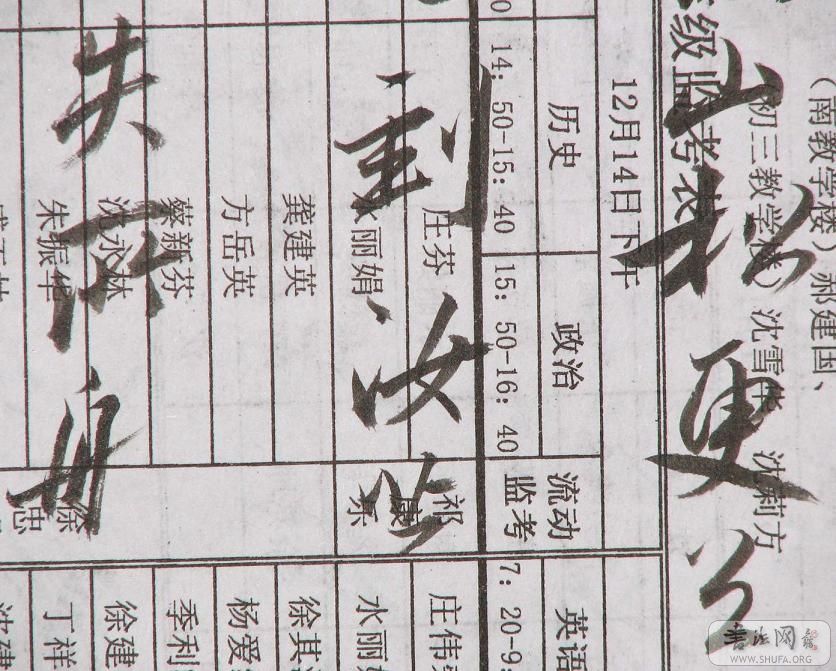 （南教学楼）郝建国、
（初三教学楼）沈雪华 沈莉方
级监考表
12月14日下午
历史 政治 流动监考 英语
14：50-15：40 15：50-16：40 7：20-9：
庄芬 祁康乐 庄伟
水丽娟 水丽
龚建英 徐其
方岳英 杨爱
蔡新芬 季利
沈永林 徐建
朱振华 徐忠 丁祥
沈建
山 松 更
汝
失 石 舟
书法网
WWW.SHUFA.ORG